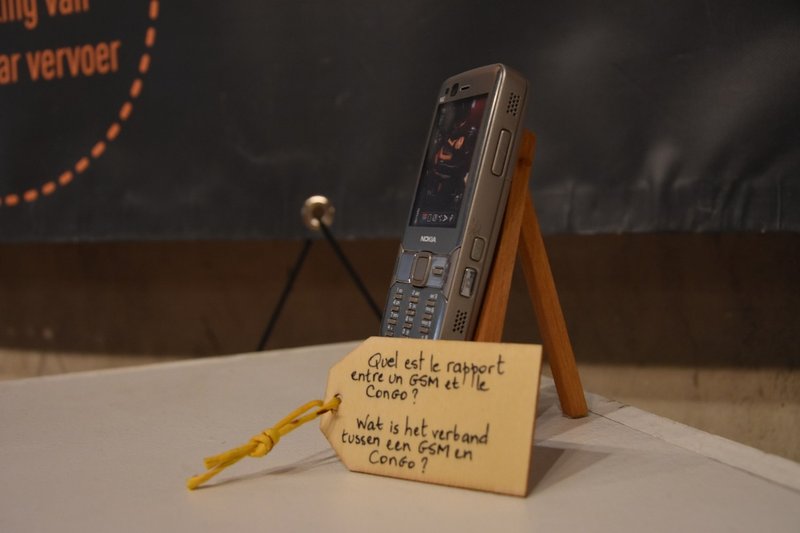 ing van
ar vervoer
NOKIA
Quel est le rapport
entre un GSM et le
Congo?
Wat is het verband
tussen een GSM en
Congo?